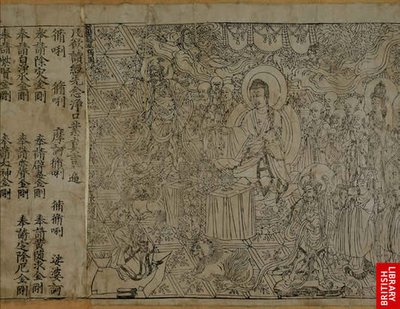 凡欲讀經先念淨口業真言一遍
脩唎 脩唎 摩訶脩唎 脩脩唎 娑婆訶
奉請除災金剛 奉請辟毒金剛 奉請黃隨求金剛
奉請白淨水金剛 奉請赤聲金剛 奉請定除厄金剛
奉請紫賢金剛 奉請大神金剛
BRITISH
LIBRARY